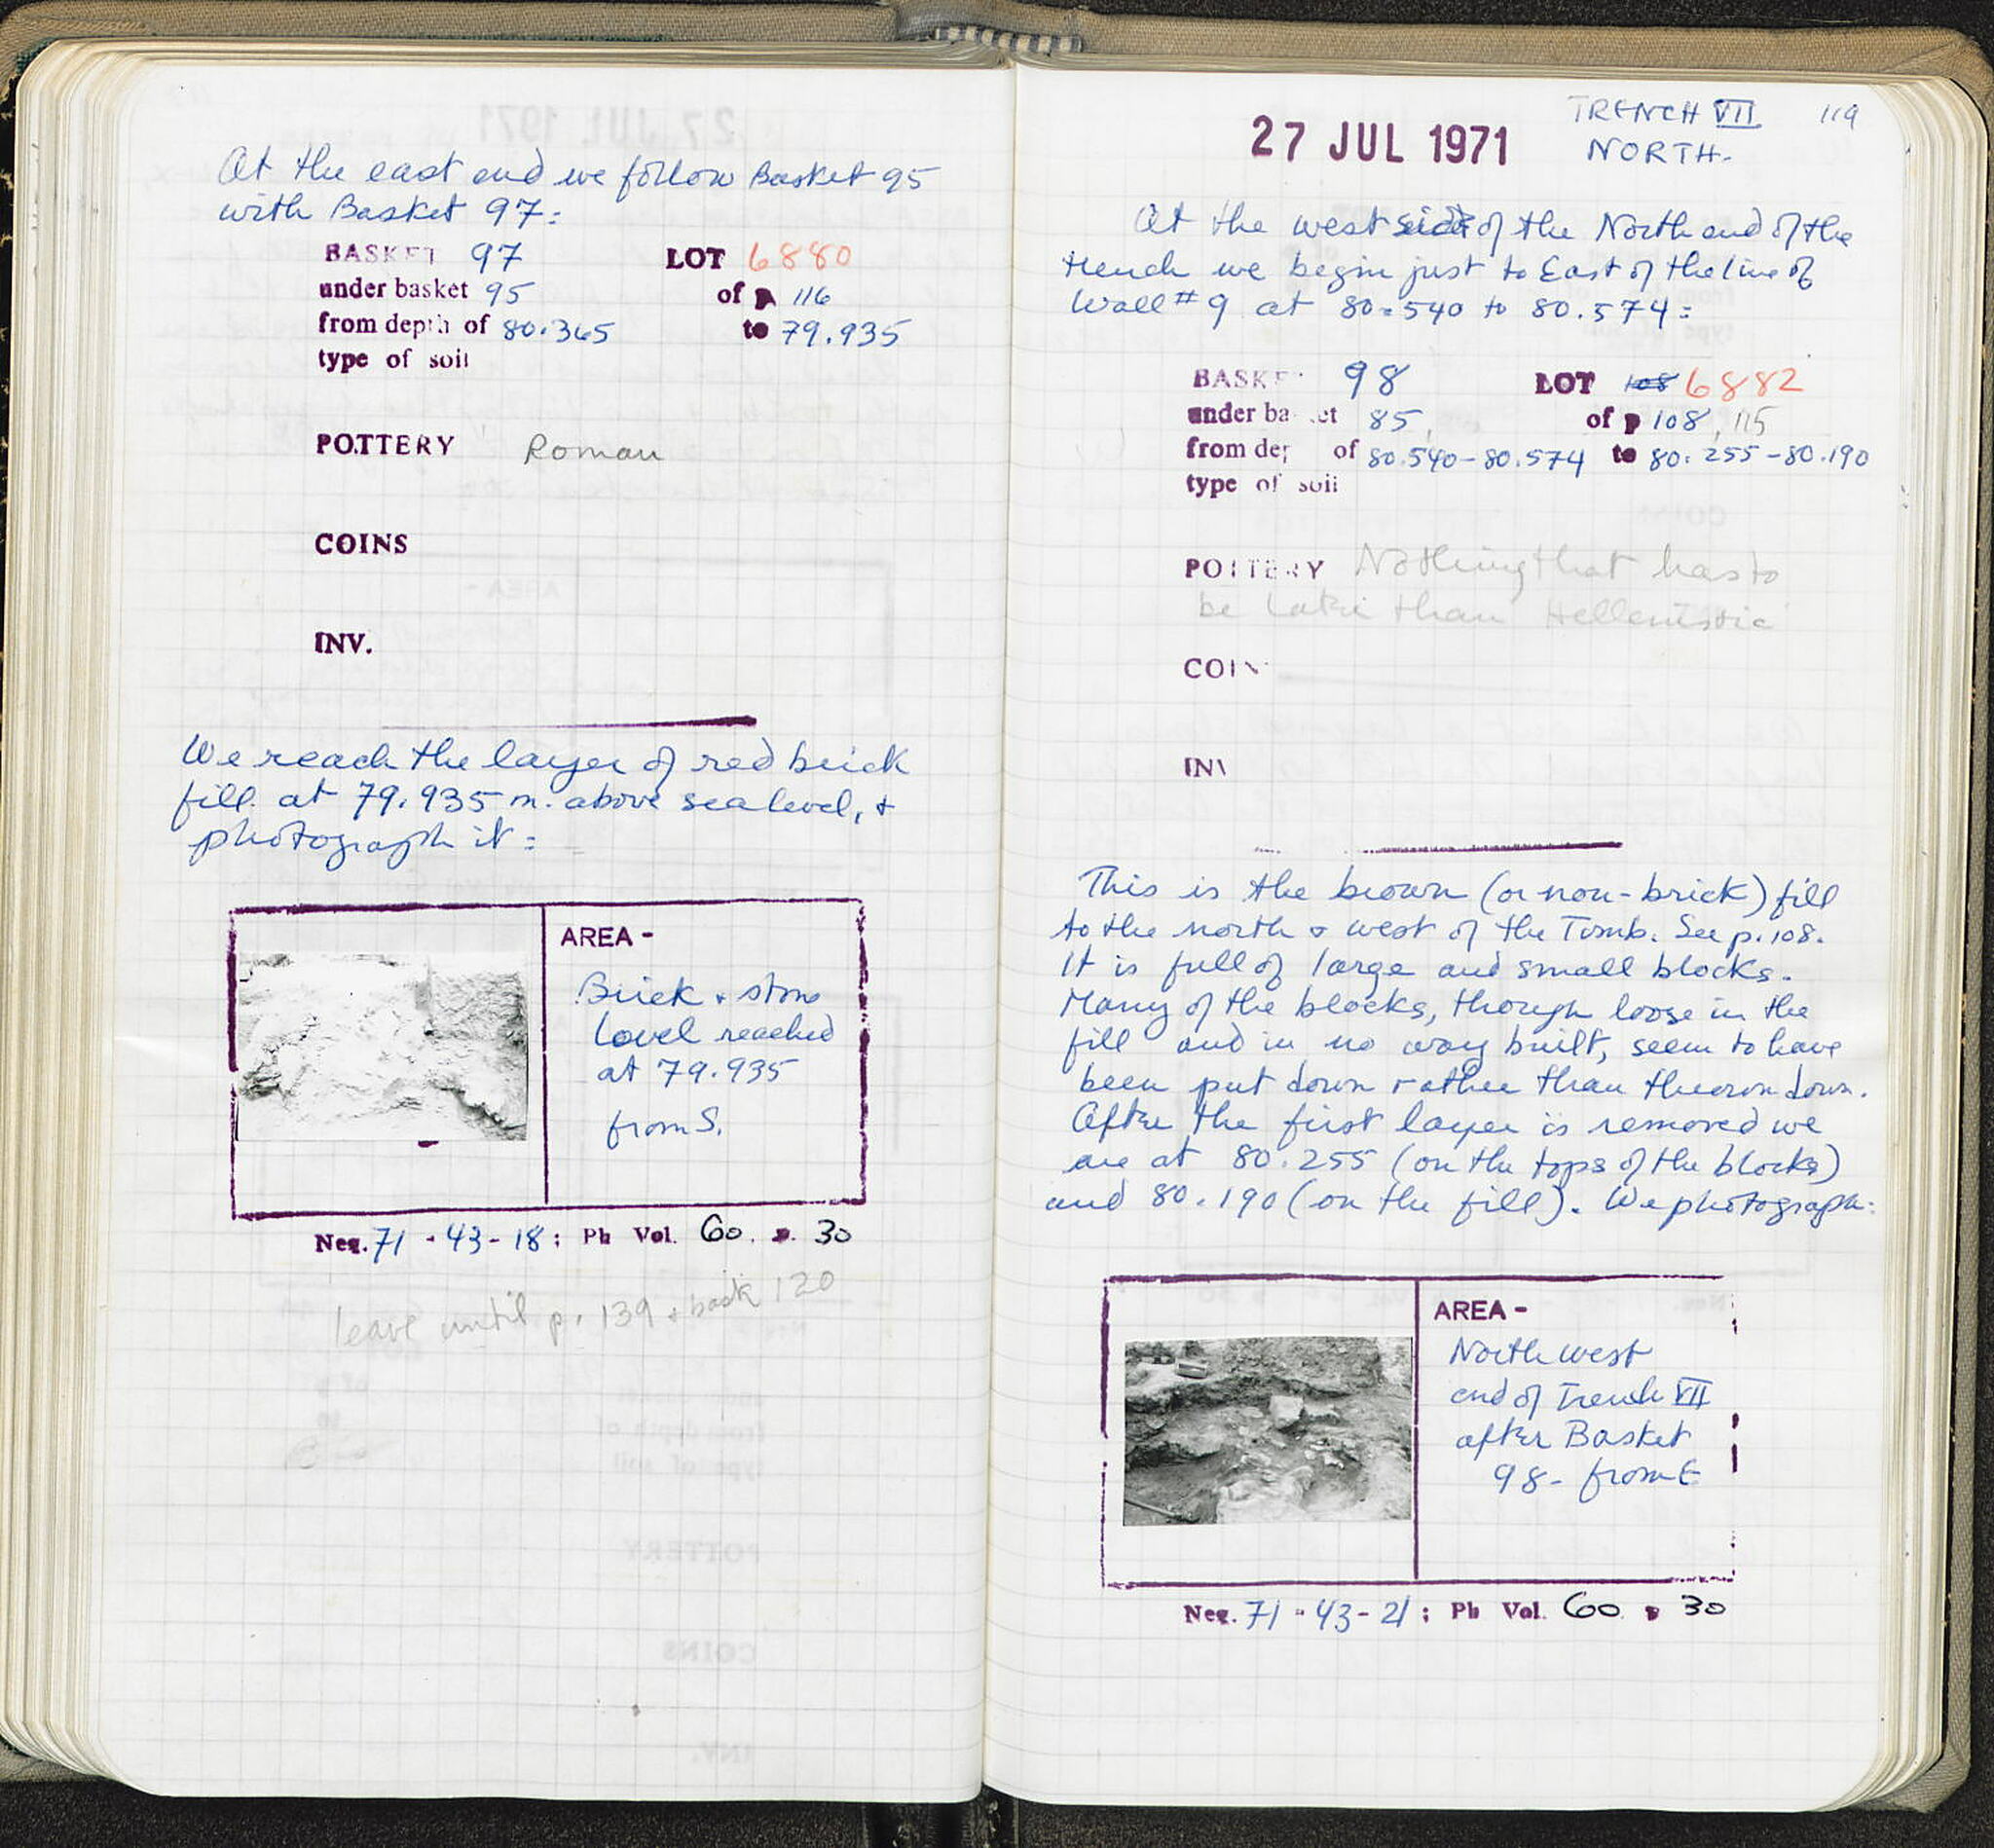 At the east end we follow Basket 95
with Basket 97:
BASKET 97 LOT 6880
under basket 95 of p 116
from depth of 80.365 to 79.935
type of soil
POTTERY Roman
COINS
INV.
We reach the layer of red brick
fill at 79.935 m. above sea level, &
photograph it:
AREA -
Brick & stone
Level reached
at 79.935
from S.
Neg. 71 - 43 - 18; Ph Vol. 60. p. 30
leave until p. 139 & bask 120
27 JUL 1971
TRENCH VII 119
NORTH.
At the west side of the North end of the
trench we begin just to East of the line of
Wall #9 at 80.540 to 80.574:
BASKET 98 LOT 108 6882
under basket 85, of p 108, 115
from dep of 80.540-80.574 to 80.255-80.190
type of soil
POTTERY Nothing that has to
be later than Hellenistic
COIN
INV
This is the brown (or non-brick) fill
to the north & west of the Tomb. See p. 108.
It is full of large and small blocks.
Many of the blocks, though loose in the
fill and in no way built, seem to have
been put down rather than thrown down.
After the first layer is removed we
are at 80.255 (on the tops of the blocks)
and 80.190 (on the fill). We photograph:
AREA -
Northwest
end of Trench VII
after Basket
98 - from E
Neg. 71 - 43 - 21; Ph Vol. 60 p 30